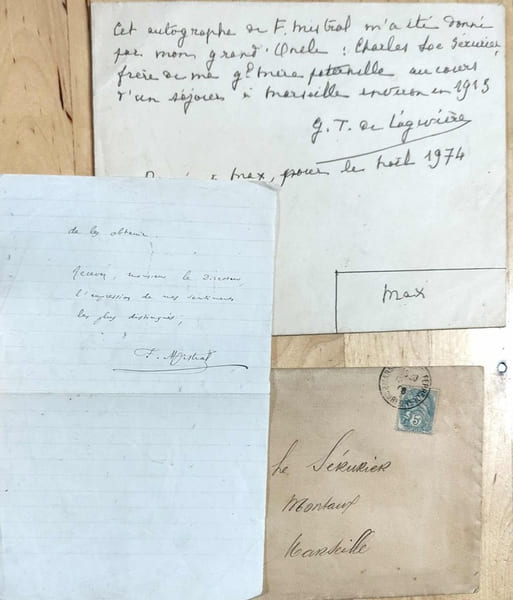 Cet autographe de F. Mistral m'a été donné
par mon grand'Oncle : Charles Loc Sérurier,
frère de ma gd Mère paternelle au cours
d'un séjour à Marseille environ en 1913
G. T. de
max, pour le Noël 1974
max
de les obtenir.
Recevez, monsieur le Directeur,
l'expression de mes sentiments
les plus distingués,
F. Mistral
5
Le Sérurier
Montaux
Marseille